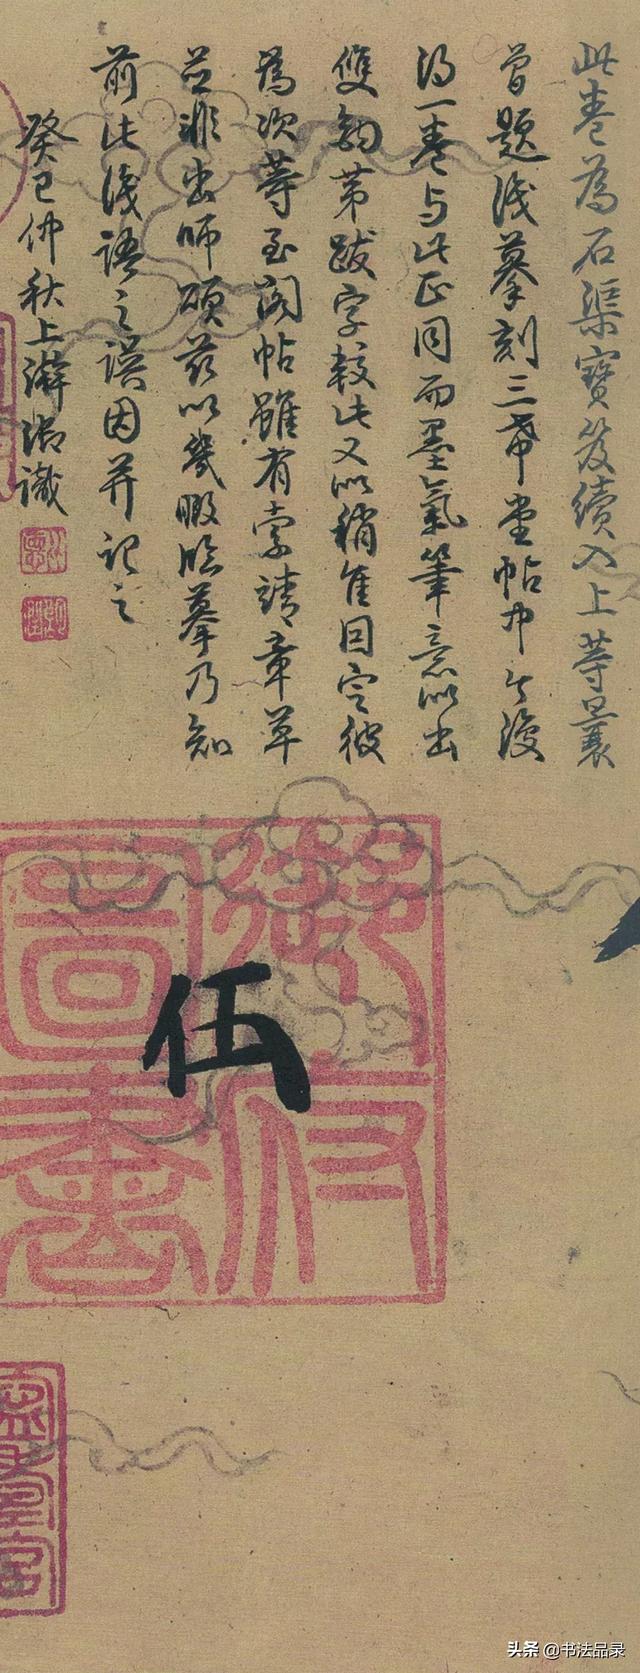 此卷為石渠寶笈續入上等曩
曾題識摹刻三希堂帖中今復
得一卷與此正同而墨氣筆意似出
雙鉤第跋字較此又似稍佳因定彼
為次等至閣帖雖有索靖章草
並非出師頌茲以幾暇臨摹乃知
前此識語之誤因并記之
癸巳仲秋上澣御識
御府圖書
伍
头条 @书法品录